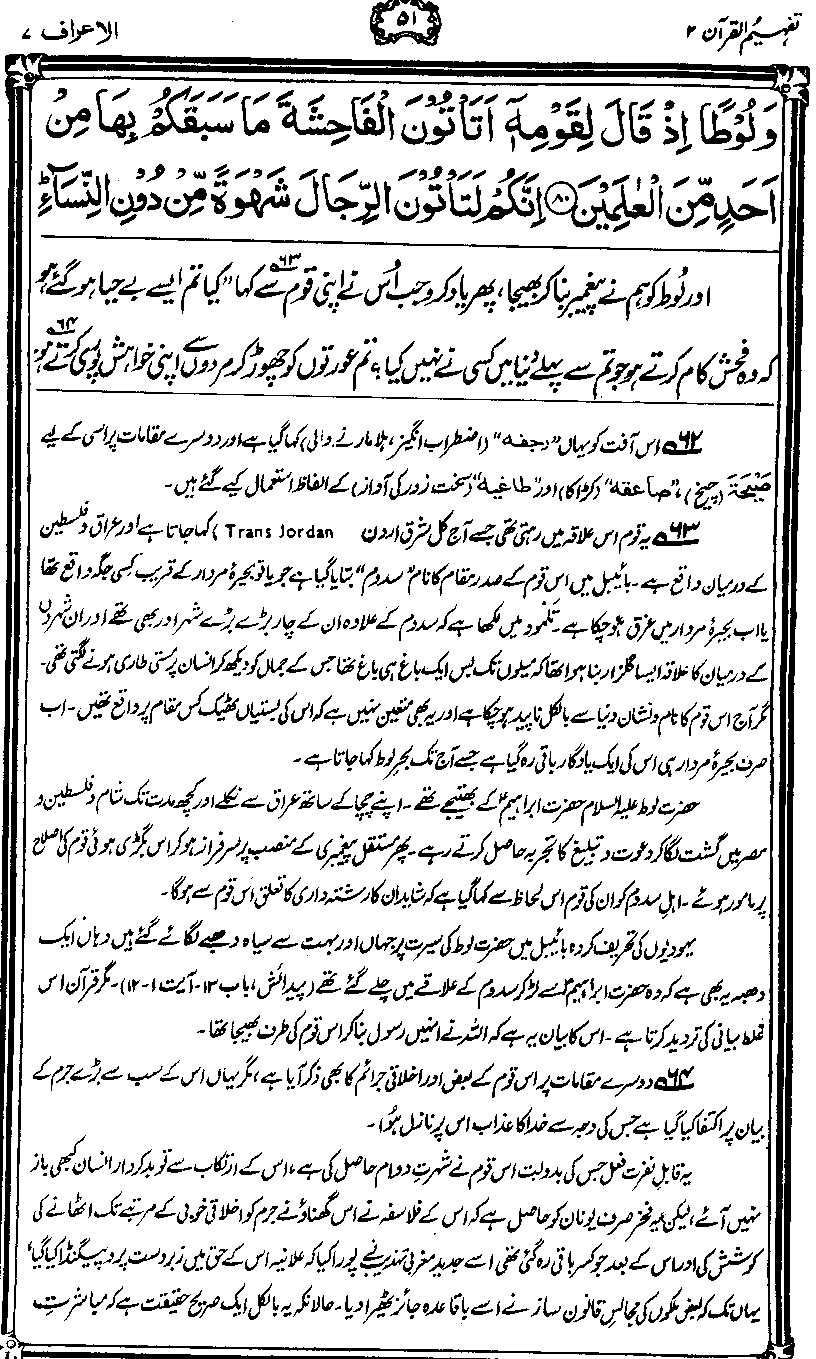 تفہیم القرآن ۲
۵۱
الاعراف ۷
وَلُوْطًا اِذْ قَالَ لِقَوْمِهٖٓ اَتَاْتُوْنَ الْفَاحِشَةَ مَا سَبَقَكُمْ بِهَا مِنْ
اَحَدٍ مِّنَ الْعٰلَمِيْنَ ۝۸۰ اِنَّكُمْ لَتَاْتُوْنَ الرِّجَالَ شَهْوَةً مِّنْ دُوْنِ النِّسَآءِ ؕ
اور لُوط کو ہم نے پیغمبر بنا کر بھیجا، پھر یاد کرو جب اُس نے اپنی قوم ۶۳ سے کہا ”کیا تم ایسے بے حیا ہو گئے ہو
کہ وہ فحش کام کرتے ہو جو تم سے پہلے دُنیا میں کسی نے نہیں کیا؟ تم عورتوں کو چھوڑ کر مردوں سے اپنی خواہش پوری کرتے ہو ۶۴
۶۲ اس آفت کو یہاں ”رجفہ“ (اضطراب انگیز، ہلا مارنے والی) کہا گیا ہے اور دوسرے مقامات پر اسی کے لیے
صَیْحَۃ (چیخ)، ”صاعقہ“ (کڑاکا) اور ”طاغیہ“ (سخت زور کی آواز) کے الفاظ استعمال کیے گئے ہیں۔
۶۳ یہ قوم اس علاقہ میں رہتی تھی جسے آج کل شرق اردن Trans Jordan) کہا جاتا ہے اور عراق و فلسطین
کے درمیان واقع ہے۔ بائیبل میں اس قوم کے صدر مقام کا نام ”سدوم“ بتایا گیا ہے جو یا تو بحیرۂ مردار کے قریب کسی جگہ واقع تھا
یا اب بحیرۂ مردار میں غرق ہو چکا ہے۔ تلمود میں لکھا ہے کہ سدوم کے علاوہ ان کے چار بڑے بڑے شہر اور بھی تھے اور ان شہروں
کے درمیان کا علاقہ ایسا گلزار بنا ہوا تھا کہ میلوں تک بس ایک باغ ہی باغ تھا جس کے جمال کو دیکھ کر انسان پر مستی طاری ہونے لگتی تھی۔
مگر آج اس قوم کا نام و نشان دنیا سے بالکل ناپید ہو چکا ہے اور یہ بھی متعین نہیں ہے کہ اس کی بستیاں ٹھیک کس مقام پر واقع تھیں۔ اب
صرف بحیرۂ مردار ہی اس کی ایک یادگار باقی رہ گیا ہے جسے آج تک بحرِ لوط کہا جاتا ہے۔
حضرت لوط علیہ السلام حضرت ابراہیمؑ کے بھتیجے تھے۔ اپنے چچا کے ساتھ عراق سے نکلے اور کچھ مدت تک شام و فلسطین و
مصر میں گشت لگا کر دعوت و تبلیغ کا تجربہ حاصل کرتے رہے۔ پھر مستقل پیغمبری کے منصب پر سرفراز ہو کر اس بگڑی ہوئی قوم کی اصلاح
پر مامور ہوئے۔ اہلِ سدوم کو ان کی قوم اس لحاظ سے کہا گیا ہے کہ شاید ان کا رشتہ داری کا تعلق اس قوم سے ہوگا۔
یہودیوں کی تحریف کردہ بائیبل میں حضرت لوط کی سیرت پر جہاں اور بہت سے سیاہ دھبے لگائے گئے ہیں وہاں ایک
دھبہ یہ بھی ہے کہ وہ حضرت ابراہیمؑ سے لڑ کر سدوم کے علاقے میں چلے گئے تھے (پیدائش، باب ۱۳- آیت ۱-۱۲)۔ مگر قرآن اس
غلط بیانی کی تردید کرتا ہے۔ اس کا بیان یہ ہے کہ اللہ نے انہیں رسول بنا کر اس قوم کی طرف بھیجا تھا۔
۶۴ دوسرے مقامات پر اس قوم کے بعض اور اخلاقی جرائم کا بھی ذکر آیا ہے، مگر یہاں اس کے سب سے بڑے جرم کے
بیان پر اکتفا کیا گیا ہے جس کی وجہ سے خدا کا عذاب اس پر نازل ہُوا۔
یہ قابلِ نفرت فعل جس کی بدولت اس قوم نے شہرتِ دوام حاصل کی ہے، اس کے ارتکاب سے تو بدکردار انسان کبھی باز
نہیں آئے، لیکن یہ فخر صرف یونان کو حاصل ہے کہ اس کے فلاسفہ نے اس گھناؤنے جرم کو اخلاقی خوبی کے مرتبے تک اٹھانے کی
کوشش کی اور اس کے بعد جو کسر باقی رہ گئی تھی اسے جدید مغربی تہذیب نے پورا کیا کہ علانیہ اس کے حق میں زبردست پروپیگنڈا کیا گیا،
یہاں تک کہ بعض ملکوں کی مجالسِ قانون ساز نے اسے باقاعدہ جائز ٹھیرا دیا۔ حالانکہ یہ بالکل ایک صریح حقیقت ہے کہ مباشرتِ